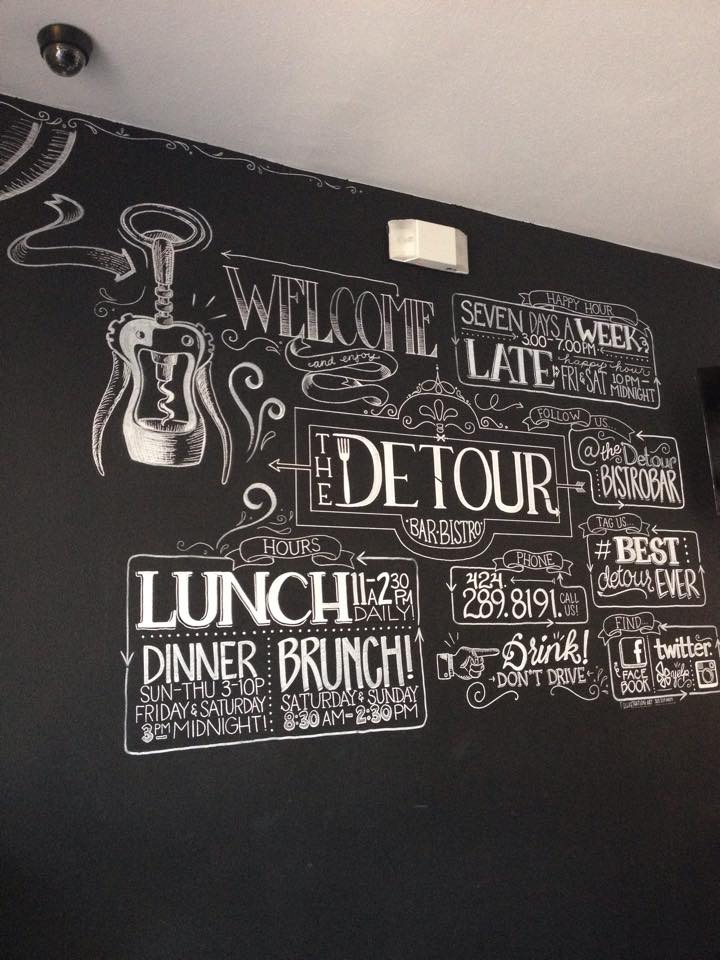 WELCOME
and enjoy
HAPPY HOUR
SEVEN DAYS A WEEK
3:00-7:00PM
LATE happy hour
FRI & SAT 10 PM-
MIDNIGHT
THE DETOUR
BAR·BISTRO
FOLLOW US...
@the Detour
BISTROBAR
TAG US...
#BEST
detour EVER
HOURS
LUNCH 11A-2:30PM
DAILY!
DINNER
SUN-THU 3-10P
FRIDAY & SATURDAY
3PM MIDNIGHT!
BRUNCH!
SATURDAY & SUNDAY
8:30 AM-2:30 PM
PHONE
424.
289.8191. CALL
US!
Drink!
·DON'T DRIVE·
FIND...
f twitter
FACE
BOOK yelp